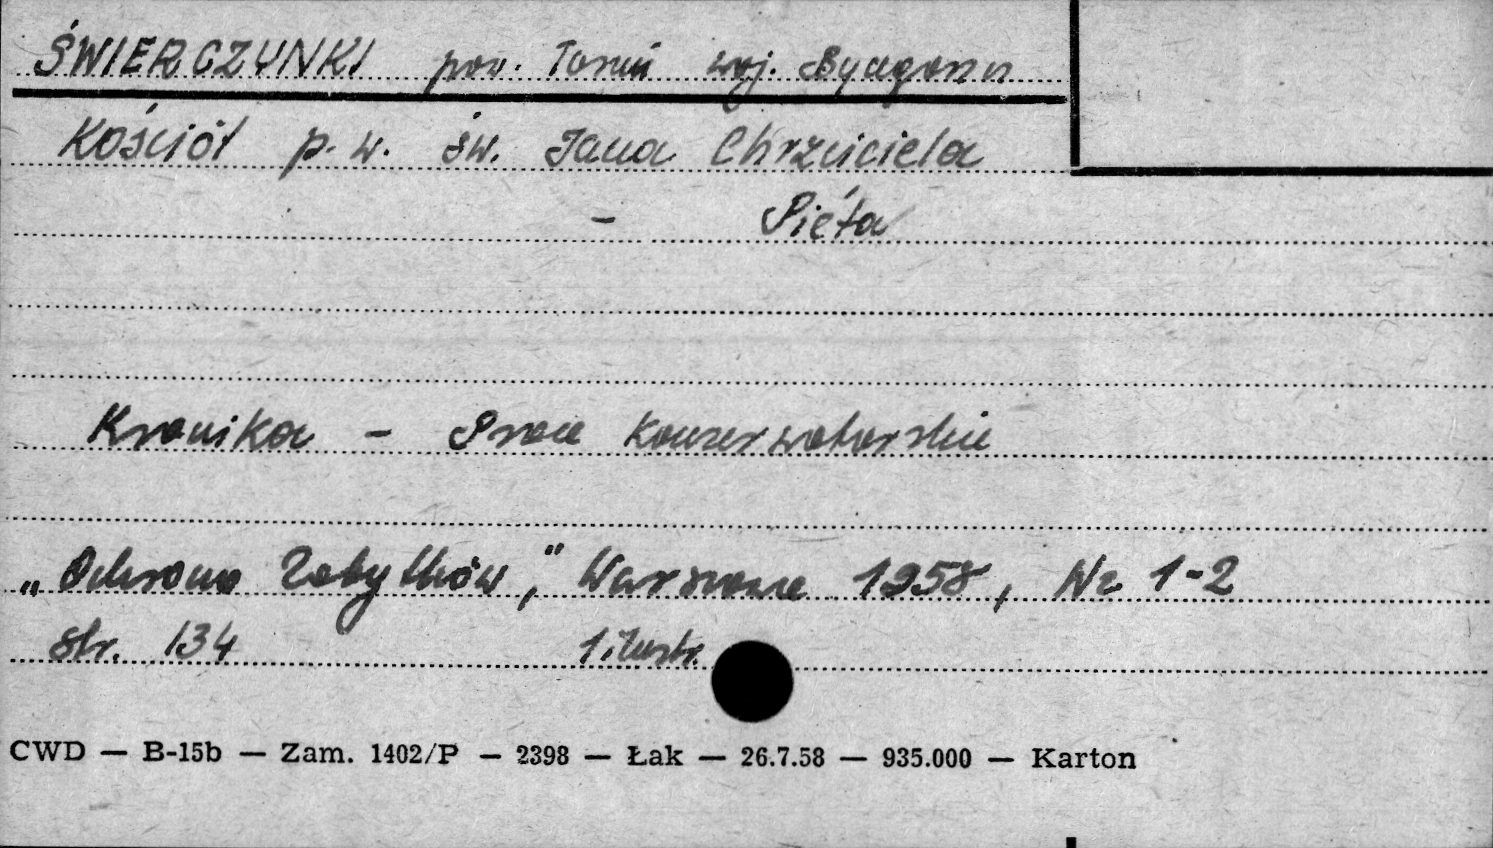 ŚWIERCZYNKI pow. Toruń woj. Bydgoszcz
Kościół p.w. św. Jana Chrzciciela
– Piéta
Kronika – Prace konserwatorskie
„Ochrona Zabytków," Warszawa 1958, Nr 1-2
str. 134 1 ilustr.
CWD — B-15b — Zam. 1402/P — 2398 — Łak — 26.7.58 — 935.000 — Karton